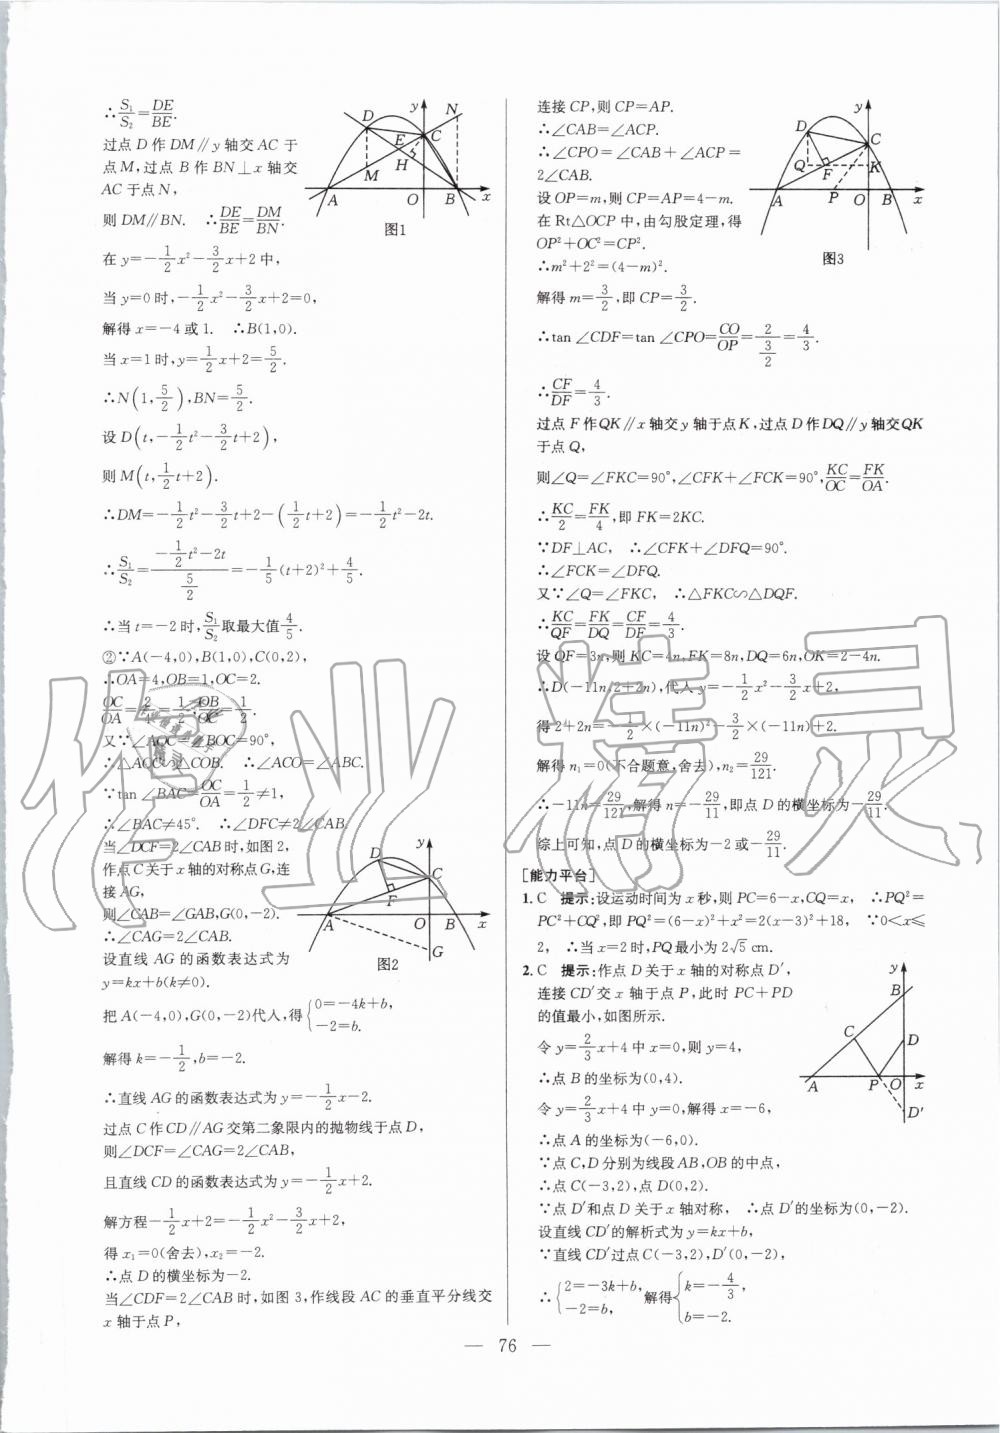 ∴S₁/S₂=DE/BE.
过点 D 作 DM∥y 轴交 AC 于
点 M,过点 B 作 BN⊥x 轴交
AC 于点 N,
则 DM∥BN. ∴DE/BE=DM/BN.
y
N
D
E
C
H
M
A
O
B
x
图1
在 y=-1/2x²-3/2x+2 中,
当 y=0 时,-1/2x²-3/2x+2=0,
解得 x=-4 或 1. ∴B(1,0).
当 x=1 时,y=1/2x+2=5/2.
∴N(1,5/2),BN=5/2.
设 D(t,-1/2t²-3/2t+2),
则 M(t,1/2t+2).
∴DM=-1/2t²-3/2t+2-(1/2t+2)=-1/2t²-2t.
∴S₁/S₂=(-1/2t²-2t)/(5/2)=-1/5(t+2)²+4/5.
∴当 t=-2 时,S₁/S₂取最大值4/5.
②∵A(-4,0),B(1,0),C(0,2),
∴OA=4,OB=1,OC=2.
OC/OA=2/4=1/2,OB/OC=1/2.
又∵∠AOC=∠BOC=90°,
∴△AOC∽△COB. ∴∠ACO=∠ABC.
∵tan∠BAC=OC/OA=1/2≠1,
∴∠BAC≠45°. ∴∠DFC≠2∠CAB.
当∠DCF=2∠CAB 时,如图 2,
作点 C 关于 x 轴的对称点 G,连
接 AG,
则∠CAB=∠GAB,G(0,-2).
∴∠CAG=2∠CAB.
设直线 AG 的函数表达式为
y=kx+b(k≠0).
y
D
C
F
A
O
B
x
G
图2
把 A(-4,0),G(0,-2)代入,得{0=-4k+b, -2=b.
解得 k=-1/2,b=-2.
∴直线 AG 的函数表达式为 y=-1/2x-2.
过点 C 作 CD∥AG 交第二象限内的抛物线于点 D,
则∠DCF=∠CAG=2∠CAB,
且直线 CD 的函数表达式为 y=-1/2x+2.
解方程-1/2x+2=-1/2x²-3/2x+2,
得 x₁=0(舍去),x₂=-2.
∴点 D 的横坐标为-2.
当∠CDF=2∠CAB 时,如图 3,作线段 AC 的垂直平分线交
x 轴于点 P,
连接 CP,则 CP=AP.
∴∠CAB=∠ACP.
∴∠CPO=∠CAB+∠ACP=
2∠CAB.
设 OP=m,则 CP=AP=4-m.
在 Rt△OCP 中,由勾股定理,得
OP²+OC²=CP².
∴m²+2²=(4-m)².
y
D
C
Q
F
K
A
P
O
B
x
图3
解得 m=3/2,即 CP=3/2.
∴tan∠CDF=tan∠CPO=CO/OP=2/(3/2)=4/3.
∴CF/DF=4/3.
过点 F 作 QK∥x 轴交 y 轴于点 K,过点 D 作 DQ∥y 轴交 QK
于点 Q,
则∠Q=∠FKC=90°,∠CFK+∠FCK=90°,KC/OC=FK/OA.
∴KC/2=FK/4,即 FK=2KC.
∵DF⊥AC, ∴∠CFK+∠DFQ=90°.
∴∠FCK=∠DFQ.
又∵∠Q=∠FKC, ∴△FKC∽△DQF.
∴KC/QF=FK/DQ=CF/DF=4/3.
设 QF=3n,则 KC=4n,FK=8n,DQ=6n,OK=2-4n.
∴D(-11n,2+2n),代入 y=-1/2x²-3/2x+2,
得 2+2n=-1/2×(-11n)²-3/2×(-11n)+2.
解得 n₁=0(不合题意,舍去),n₂=29/121.
∴-11n=29/121,解得 n=-29/11,即点 D 的横坐标为-29/11.
综上可知,点 D 的横坐标为-2 或-29/11.
[能力平台]
1. C 提示:设运动时间为 x 秒,则 PC=6-x,CQ=x, ∴PQ²=
PC²+CQ²,即 PQ²=(6-x)²+x²=2(x-3)²+18, ∵0<x≤
2, ∴当 x=2 时,PQ 最小为 2√5 cm.
2. C 提示:作点 D 关于 x 轴的对称点 D′,
连接 CD′交 x 轴于点 P,此时 PC+PD
的值最小,如图所示.
令 y=2/3x+4 中 x=0,则 y=4,
∴点 B 的坐标为(0,4).
令 y=2/3x+4 中 y=0,解得 x=-6,
y
B
C
D
A
P
O
x
D′
∴点 A 的坐标为(-6,0).
∵点 C,D 分别为线段 AB,OB 的中点,
∴点 C(-3,2),点 D(0,2).
∵点 D′和点 D 关于 x 轴对称, ∴点 D′的坐标为(0,-2).
设直线 CD′的解析式为 y=kx+b,
∵直线 CD′过点 C(-3,2),D′(0,-2),
∴{2=-3k+b, -2=b, 解得{k=-4/3, b=-2.
— 76 —
作业精灵